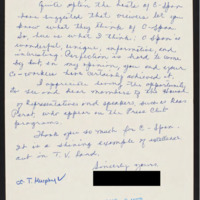 Quite often the hosts of C-Span
have suggested that viewers let you
know what they think of C-Span.
So, here is what I think: C-Span
is wonderful, unique, informative, and
interesting. Perfection is hard to come
by but, in my opinion, you and your
co-workers have certainly achieved it.
I appreciate having the opportunity
to see and hear members of the House
of Representatives and speakers, such as Ross
Perot, who appear on the Press Club
programs.
Thank you so much for C-Span.
It is a shining example of excellence
out on T.V. land.
Sincerely yours
T. Murphy